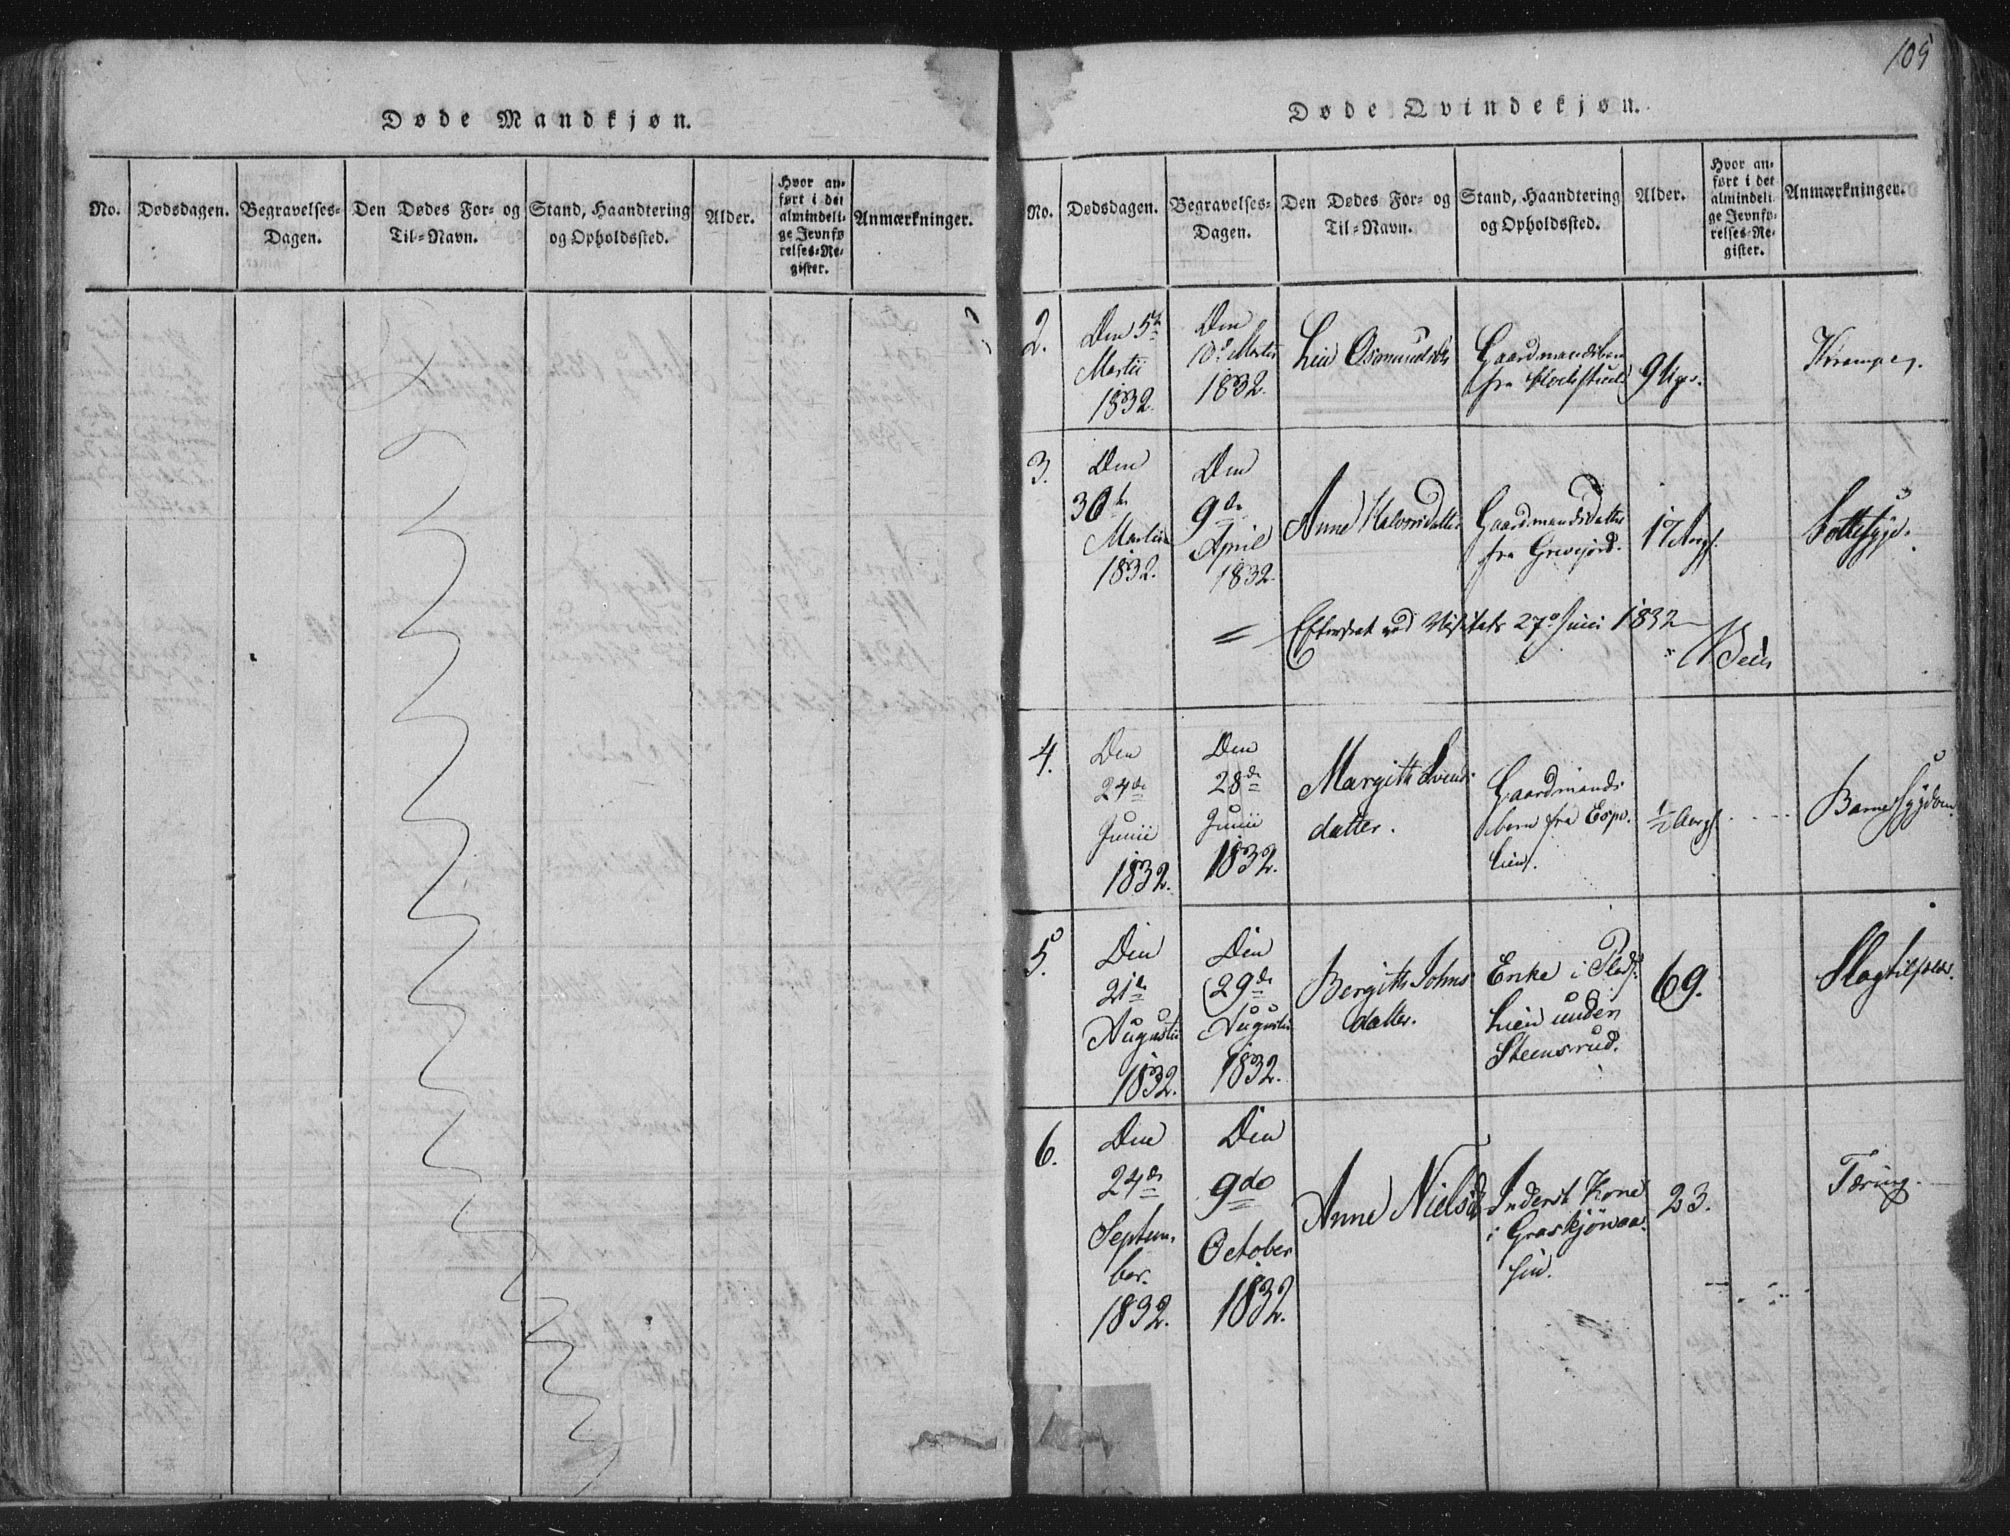 105
Døde Mandkjøn.
No. Dødsdagen. Begravelses-Dagen. Den Dødes For- og Til-Navn. Stand, Haandtering og Opholdssted. Alder. Hvor anført i det almindelige Jevnførelses-Register. Anmærkninger.
Døde Qvindekjøn.
No. Dødsdagen. Begravelses-Dagen. Den Dødes For- og Til-Navn. Stand, Haandtering og Opholdssted. Alder. Hvor anført i det almindelige Jevnførelses-Register. Anmærkninger.
2.
Den 5te
Martii
1832.
Den
Martii
1832.
Osmundsdtr
Gaardmandsbarn
fra
9 Uger.
Krampe.
3.
Den
30te
Martii
1832.
Den
9de
April
1832.
Anne Halvorsdatter
Gaardmandsdatter
fra Grevsjord.
17 Aar
Sottesyge.
Efterseet ved Visitats 27de Junii 1832
4.
Den
24de
Junii
1832.
Den
28de
Junii
1832.
Margith Svends
datter.
Gaardmands
barn fra Espe
lien.
1/2 Aar
Barnesygdom.
5.
Den
21de
Augustii
1832.
Den
29de
Augustii
1832.
Bergith Johns
datter.
Enke i Plads.
Lien under
Steensrud.
69.
6.
Den
24de
Septem
ber.
1832.
Den
9de
October
1832.
Anne Nielsd
Inderst Kone
i
23.
Tæring.